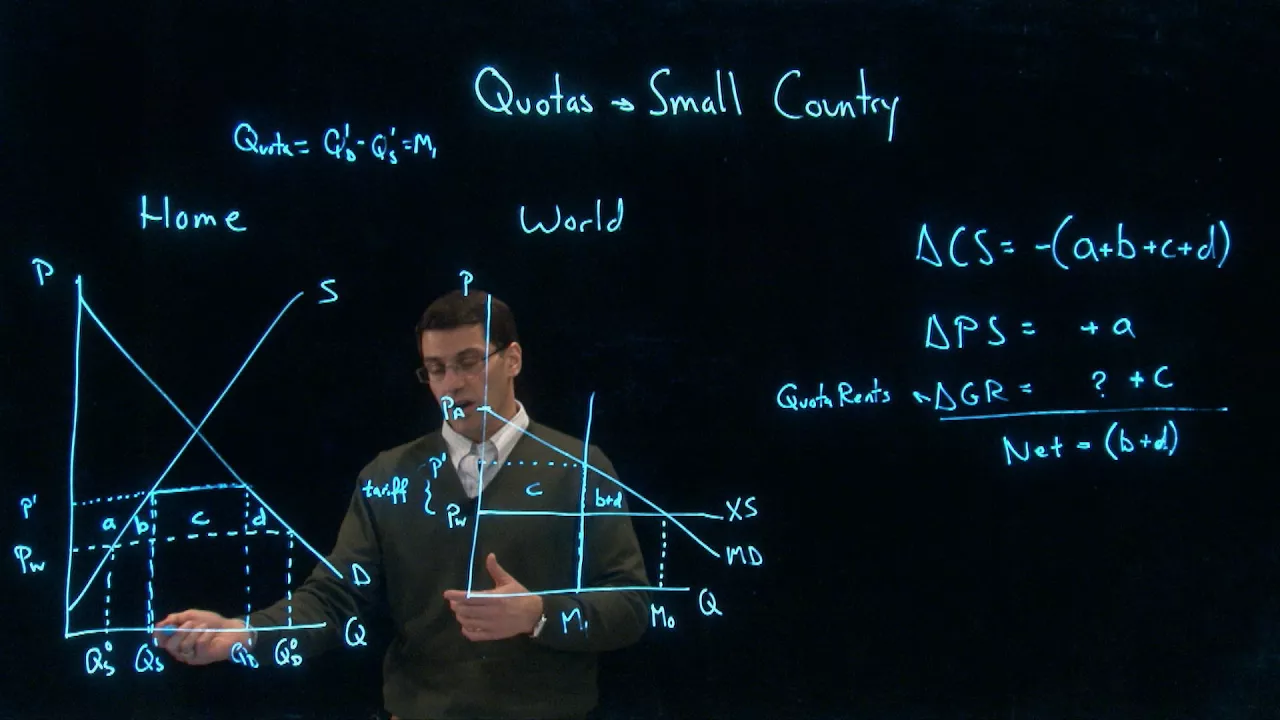 Quotas → Small Country
Quota = Q'D - Q'S = M1
Home
World
ΔCS = -(a+b+c+d)
ΔPS = + a
Quota Rents ΔGR = ? + c
Net = (b+d)
P
S
P'
Pw
a
b
c
d
D
Q
Q⁰S
Q'S
Q'D
Q⁰D
P
PA
P'
tariff {
Pw
c
b+d
XS
MD
M1
M0
Q